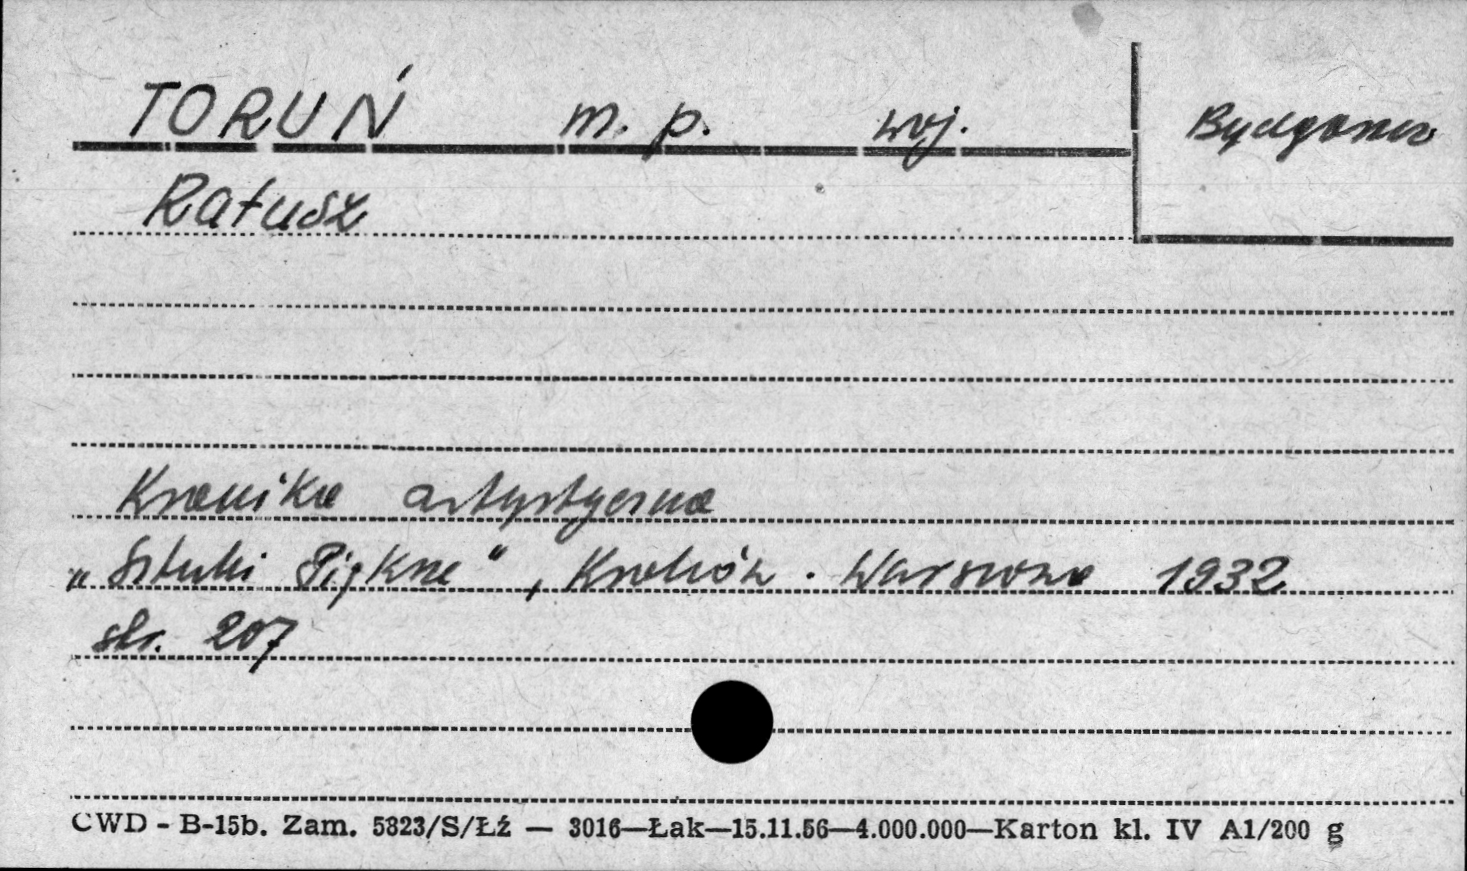 TORUŃ m. p. woj. Bydgoszcz
Ratusz
Kronika artystyczna
„Sztuki Piękne", Kraków. Warszawa 1932
str. 207
CWD - B-15b. Zam. 5823/S/Łź — 3016—Łak—15.11.56—4.000.000—Karton kl. IV A1/200 g